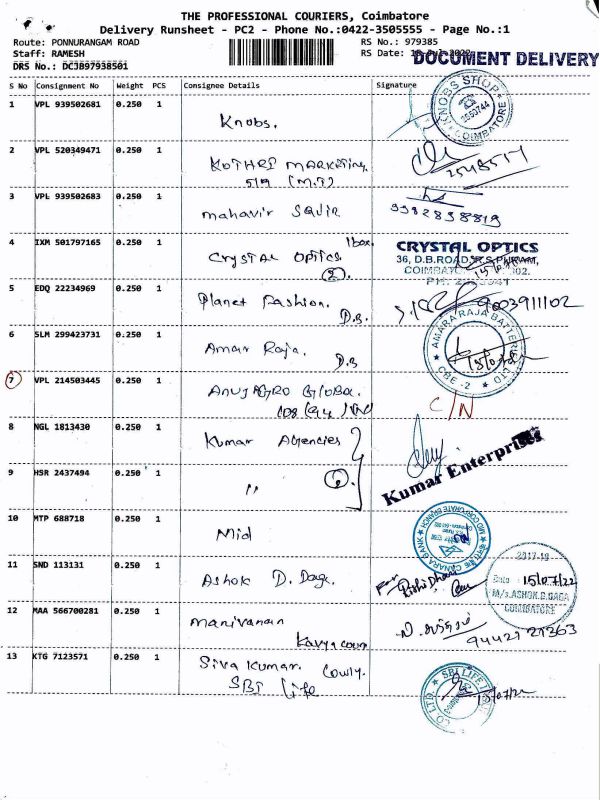 THE PROFESSIONAL COURIERS, Coimbatore
Delivery Runsheet - PC2 - Phone No.:0422-3505555 - Page No.:1
Route: PONNURANGAM ROAD
Staff: RAMESH
DRS No.: DCJB97938501
RS No.: 979385
RS Date:
DOCUMENT DELIVERY
S No Consignment No Weight PCS Consignee Details Signature
1 VPL 939502681 0.250 1 Knobs.
KNOBS SHOP
COIMBATORE
2 VPL 520349471 0.250 1 KOTHRI MARKETING
3 VPL 939502683 0.250 1 mahavir
4 IXM 501797165 0.250 1 Crystal Optics 1box.
(2).
CRYSTAL OPTICS
36, D.B.ROAD, R.S.PURAM,
5 EDQ 22234969 0.250 1 Planet Fashion.
D.B. 9003911102
6 SLM 299423731 0.250 1 Amar Raja.
D.B
AMARA RAJA BATTERIES LTD
CBE-2
15/07/22
7 VPL 214503445 0.250 1
C/N
8 NGL 1813430 0.250 1 Kumar Agencies
Kumar Enterprises
9 HSR 2437494 0.250 1 "
10 MTP 688718 0.250 1 Mid
CANARA BANK
MID CORPORATE BRANCH
11 SND 113131 0.250 1 Ashok D. Daga.
For
2017-18
Date : 15/07/22
M/s.ASHOK.D.DAGA
COIMBATORE
12 MAA 566700281 0.250 1 Manivanan
13 KTG 7123571 0.250 1 Siva Kumar. Cowly.
SBI Life
SBI LIFE
CO LTD.
15/07/22